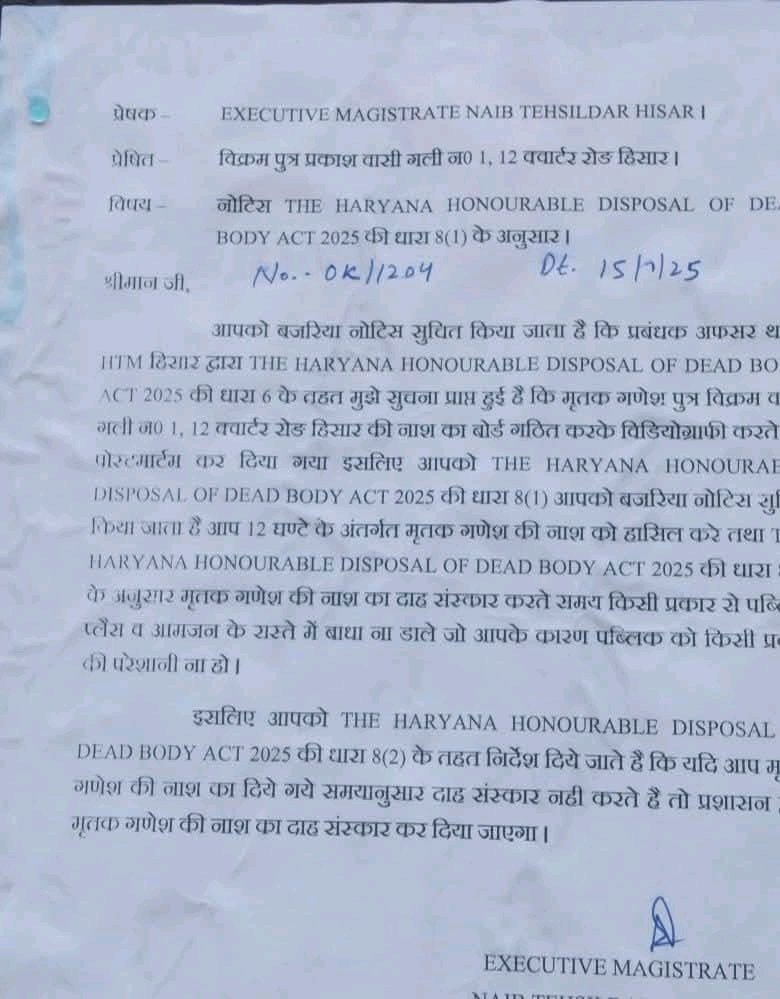 प्रेषक – EXECUTIVE MAGISTRATE NAIB TEHSILDAR HISAR।
प्रेषित – विक्रम पुत्र प्रकाश वासी गली न0 1, 12 क्वार्टर रोङ हिसार।
विषय – नोटिस THE HARYANA HONOURABLE DISPOSAL OF DEA
BODY ACT 2025 की धारा 8(1) के अनुसार।
No.- OK/1204 Dt. 15/7/25
श्रीमान जी,
आपको बजरिया नोटिस सुचित किया जाता है कि प्रबंधक अफसर था
HTM हिसार द्वारा THE HARYANA HONOURABLE DISPOSAL OF DEAD BO
ACT 2025 की धारा 6 के तहत मुझे सुचना प्राप्त हुई है कि मृतक गणेश पुत्र विक्रम व
गली न0 1, 12 क्वार्टर रोङ हिसार की नाश का बोर्ड गठित करके विडियोग्राफी करते
पोस्टमार्टम कर दिया गया इसलिए आपको THE HARYANA HONOURAB
DISPOSAL OF DEAD BODY ACT 2025 की धारा 8(1) आपको बजरिया नोटिस सुि
किया जाता है आप 12 घण्टे के अंतर्गत मृतक गणेश की नाश को हासिल करे तथा T
HARYANA HONOURABLE DISPOSAL OF DEAD BODY ACT 2025 की धारा
के अनुसार मृतक गणेश की नाश का दाह संस्कार करते समय किसी प्रकार से पब्लि
प्लैस व आमजन के रास्ते में बाधा ना डाले जो आपके कारण पब्लिक को किसी प्र
की परेशानी ना हो।
इसलिए आपको THE HARYANA HONOURABLE DISPOSAL
DEAD BODY ACT 2025 की धारा 8(2) के तहत निर्देश दिये जाते है कि यदि आप मृ
गणेश की नाश का दिये गये समयानुसार दाह संस्कार नही करते है तो प्रशासन
मृतक गणेश की नाश का दाह संस्कार कर दिया जाएगा।
EXECUTIVE MAGISTRATE